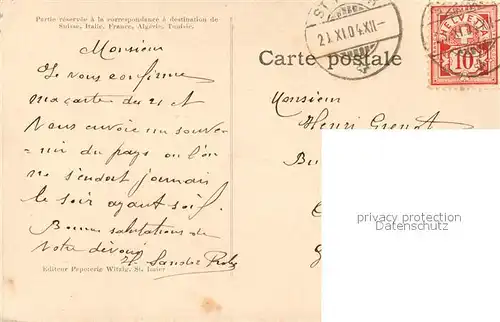 Partie réservée à la correspondance à destination de
Suisse, Italie, France, Algérie, Tunisie.
Monsieur
Je vous confirme
ma carte du 21 et
Vous envoie un souve-
-nir du pays ou l'on
ne s'endort jamais
le soir ayant soif.
Bonnes salutations de
votre dévoué
H. Sandoz
Editeur Papeterie Witzig, St. Imier
ST
21.XI.04.XII-
HELVETIA
10
Carte postale
Monsieur
Henri
privacy protection
watermark